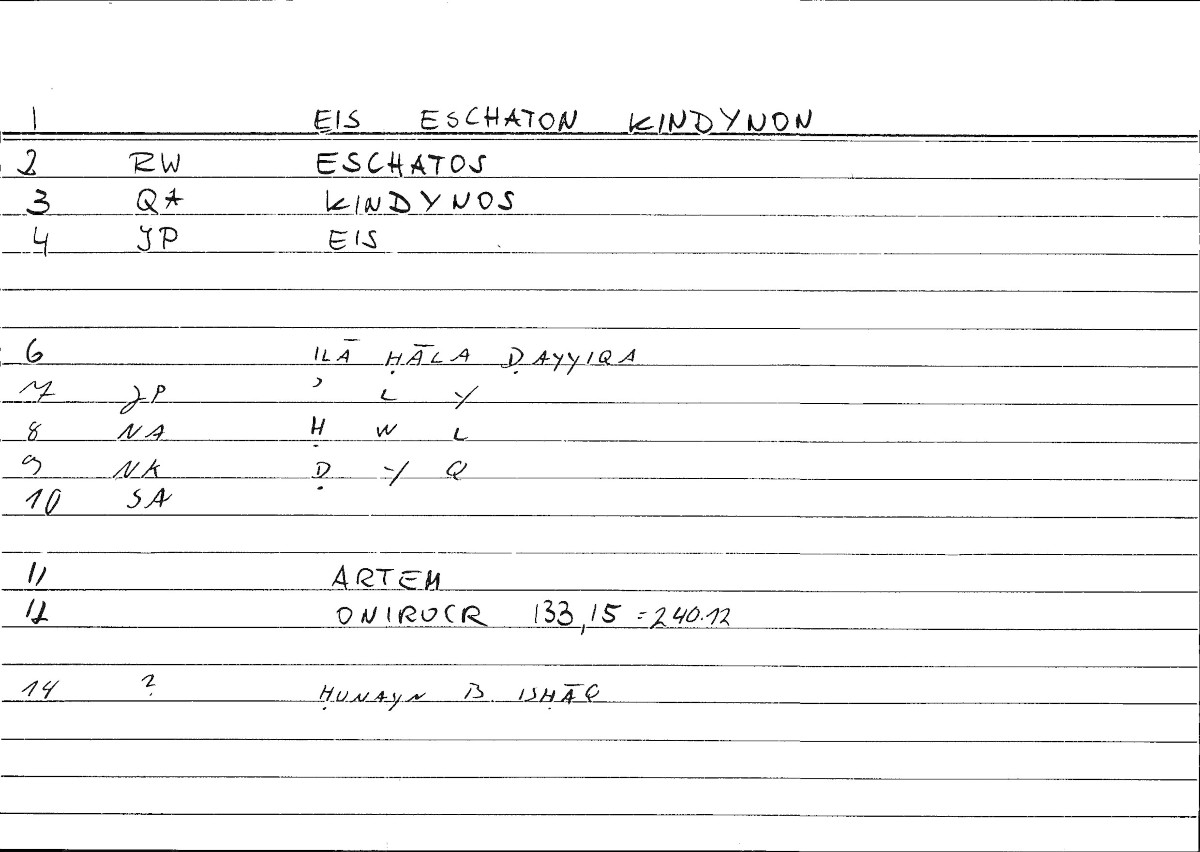 1 EIS ESCHATON KINDYNON
2 RW ESCHATOS
3 QA KINDYNOS
4 JP EIS
6 ILĀ ḤĀLA ḌAYYIQA
7 JP ʾ L Y
8 NA Ḥ W L
9 NK Ḍ Y Q
10 SA
11 ARTEM
12 ONIROCR 133,15 = 240.12
14 ? ḤUNAYN B ISḤĀQ